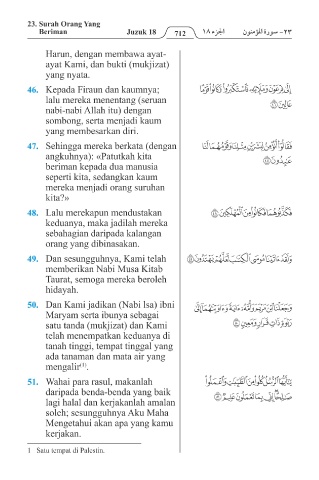 23. Surah Orang Yang
Beriman Juzuk 18 712 الجزء ١٨ ٢٣- سورة المؤمنون
Harun, dengan membawa ayat-
ayat Kami, dan bukti (mukjizat)
yang nyata.
46. Kepada Firaun dan kaumnya;
lalu mereka menentang (seruan
nabi-nabi Allah itu) dengan
sombong, serta menjadi kaum
yang membesarkan diri.
إِلَىٰ فِرْعَوْنَ وَمَلَإِيْهِۦ فَٱسْتَكْبَرُواْ وَكَانُواْ قَوْمًا
عَالِينَ ٤٦
47. Sehingga mereka berkata (dengan
angkuhnya): «Patutkah kita
beriman kepada dua manusia
seperti kita, sedangkan kaum
mereka menjadi orang suruhan
kita?»
فَقَالُوٓاْ أَنُؤْمِنُ لِبَشَرَيْنِ مِثْلِنَا وَقَوْمُهُمَا لَنَا
عَٰبِدُونَ ٤٧
48. Lalu merekapun mendustakan
keduanya, maka jadilah mereka
sebahagian daripada kalangan
orang yang dibinasakan.
فَكَذَّبُوهُمَا فَكَانُواْ مِنَ ٱلْمُهْلَكِينَ ٤٨
49. Dan sesungguhnya, Kami telah
memberikan Nabi Musa Kitab
Taurat, semoga mereka beroleh
hidayah.
وَلَقَدْ ءَاتَيْنَا مُوسَى ٱلْكِتَٰبَ لَعَلَّهُمْ يَهْتَدُونَ ٤٩
50. Dan Kami jadikan (Nabi Isa) ibni
Maryam serta ibunya sebagai
satu tanda (mukjizat) dan Kami
telah menempatkan keduanya di
tanah tinggi, tempat tinggal yang
ada tanaman dan mata air yang
mengalir⁽¹⁾.
وَجَعَلْنَا ٱبْنَ مَرْيَمَ وَأُمَّهُۥٓ ءَايَةً وَءَاوَيْنَٰهُمَآ إِلَىٰ
رَبْوَةٍ ذَاتِ قَرَارٍ وَمَعِينٍ ٥٠
51. Wahai para rasul, makanlah
daripada benda-benda yang baik
lagi halal dan kerjakanlah amalan
soleh; sesungguhnya Aku Maha
Mengetahui akan apa yang kamu
kerjakan.
يَٰٓأَيُّهَا ٱلرُّسُلُ كُلُواْ مِنَ ٱلطَّيِّبَٰتِ وَٱعْمَلُواْ
صَٰلِحًا إِنِّى بِمَا تَعْمَلُونَ عَلِيمٌ ٥١
1 Satu tempat di Palestin.